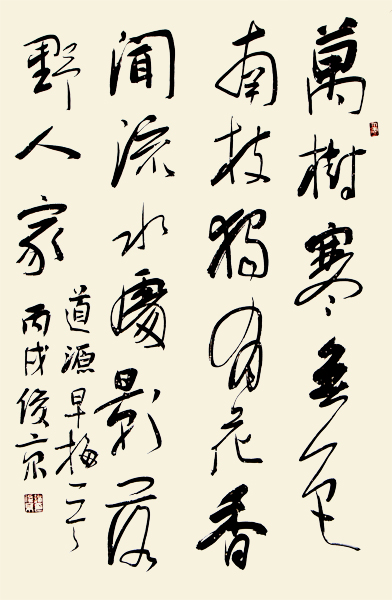 萬樹寒無色
南枝獨有花香
聞流水處影落
野人家
道源早梅一首
丙戌俊京